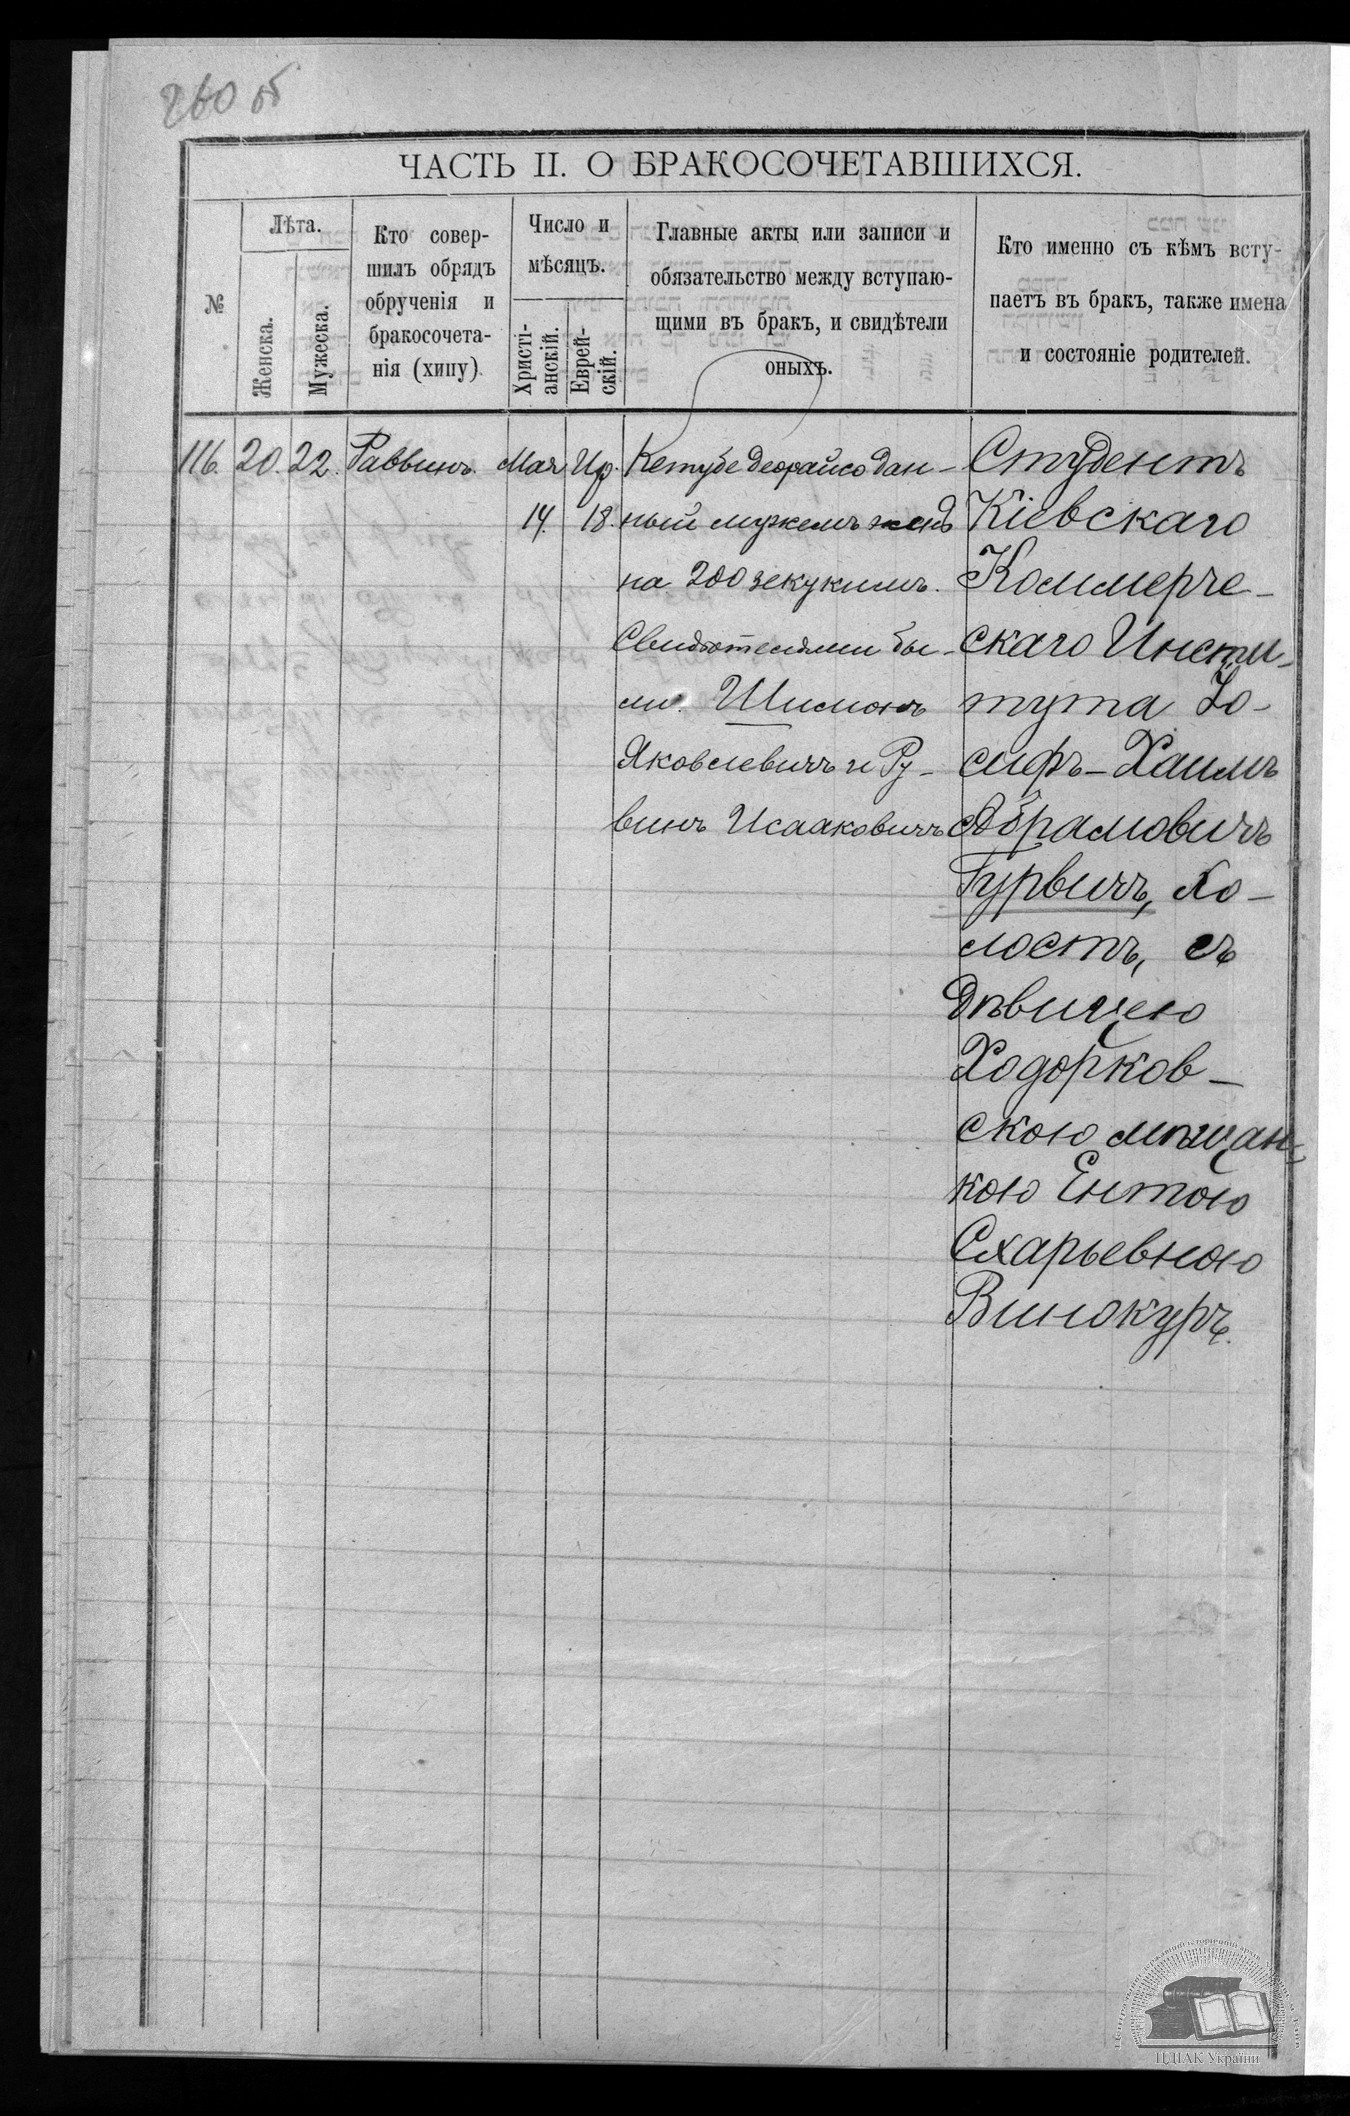 260 об
ЧАСТЬ II. О БРАКОСОЧЕТАВШИХСЯ.
№
Лѣта.
Женска.
Мужеска.
Кто совер-
шилъ обрядъ
обрученія и
бракосочета-
нія (хипу)
Число и
мѣсяцъ.
Христі-
анскій.
Еврей-
скій.
Главные акты или записи и
обязательство между вступаю-
щими въ брак, и свидѣтели
оныхъ.
Кто именно съ кѣмъ всту-
паетъ въ бракъ, также имена
и состояніе родителей.
116. 20. 22. Раввинъ. Мая 14. Ир. 18.
Кетубе деорайсо дан-
ный мужемъ женѣ
на 200 зекукимъ.
Свидѣтелями бы-
ли: Шимонъ
Яковлевичъ и Ру-
винъ Исааковичъ
Студентъ
Кіевскаго
Коммерче-
скаго Инсти-
тута Іо-
сифъ-Хаимъ
Абрамовичъ
Гурвичъ, хо-
лостъ, съ
дѣвицею
Ходорков-
скою мѣщан-
кою Ентою
Схарьевною
Винокуръ.
ЦДІАК України